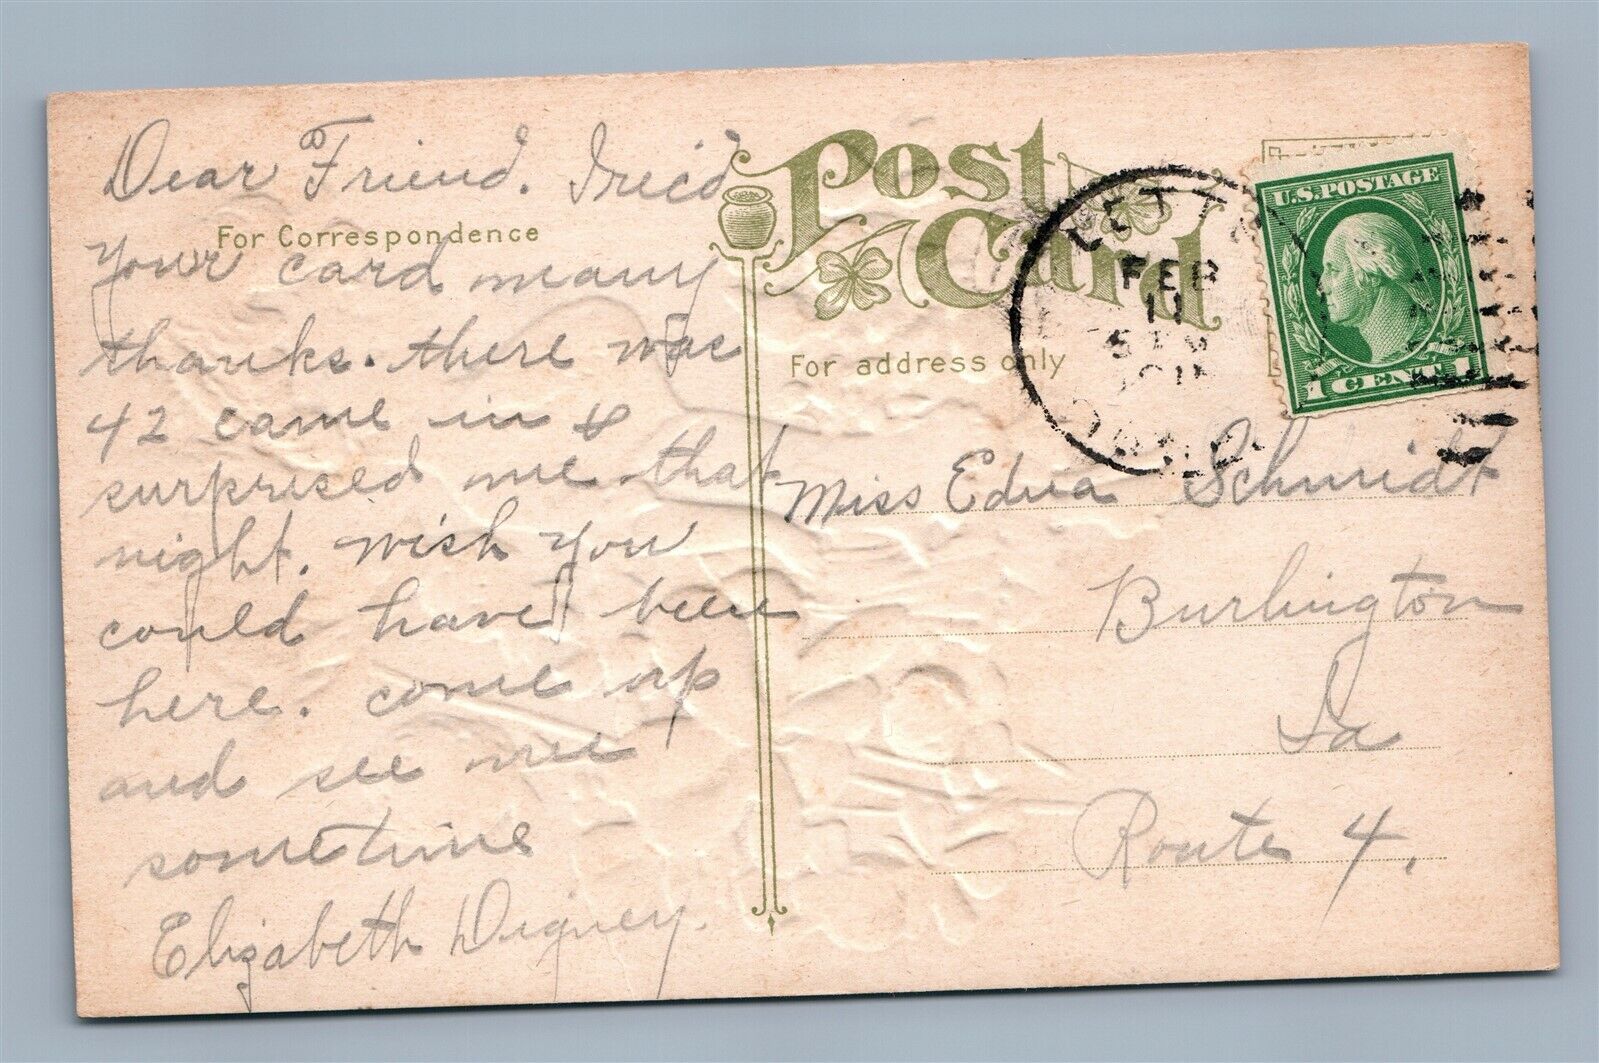 Dear Friend. I rec'd
For Correspondence
Your card many
thanks. there was
42 came in &
surprised me that
night. Wish you
could have been
here. come up
and see me
sometime
Elizabeth Digney.
Post Card
For address only
LETTS
FEB
11
U.S. POSTAGE
1 CENT 1
Miss Edna Schmidt
Burlington
Ia
Route 4.